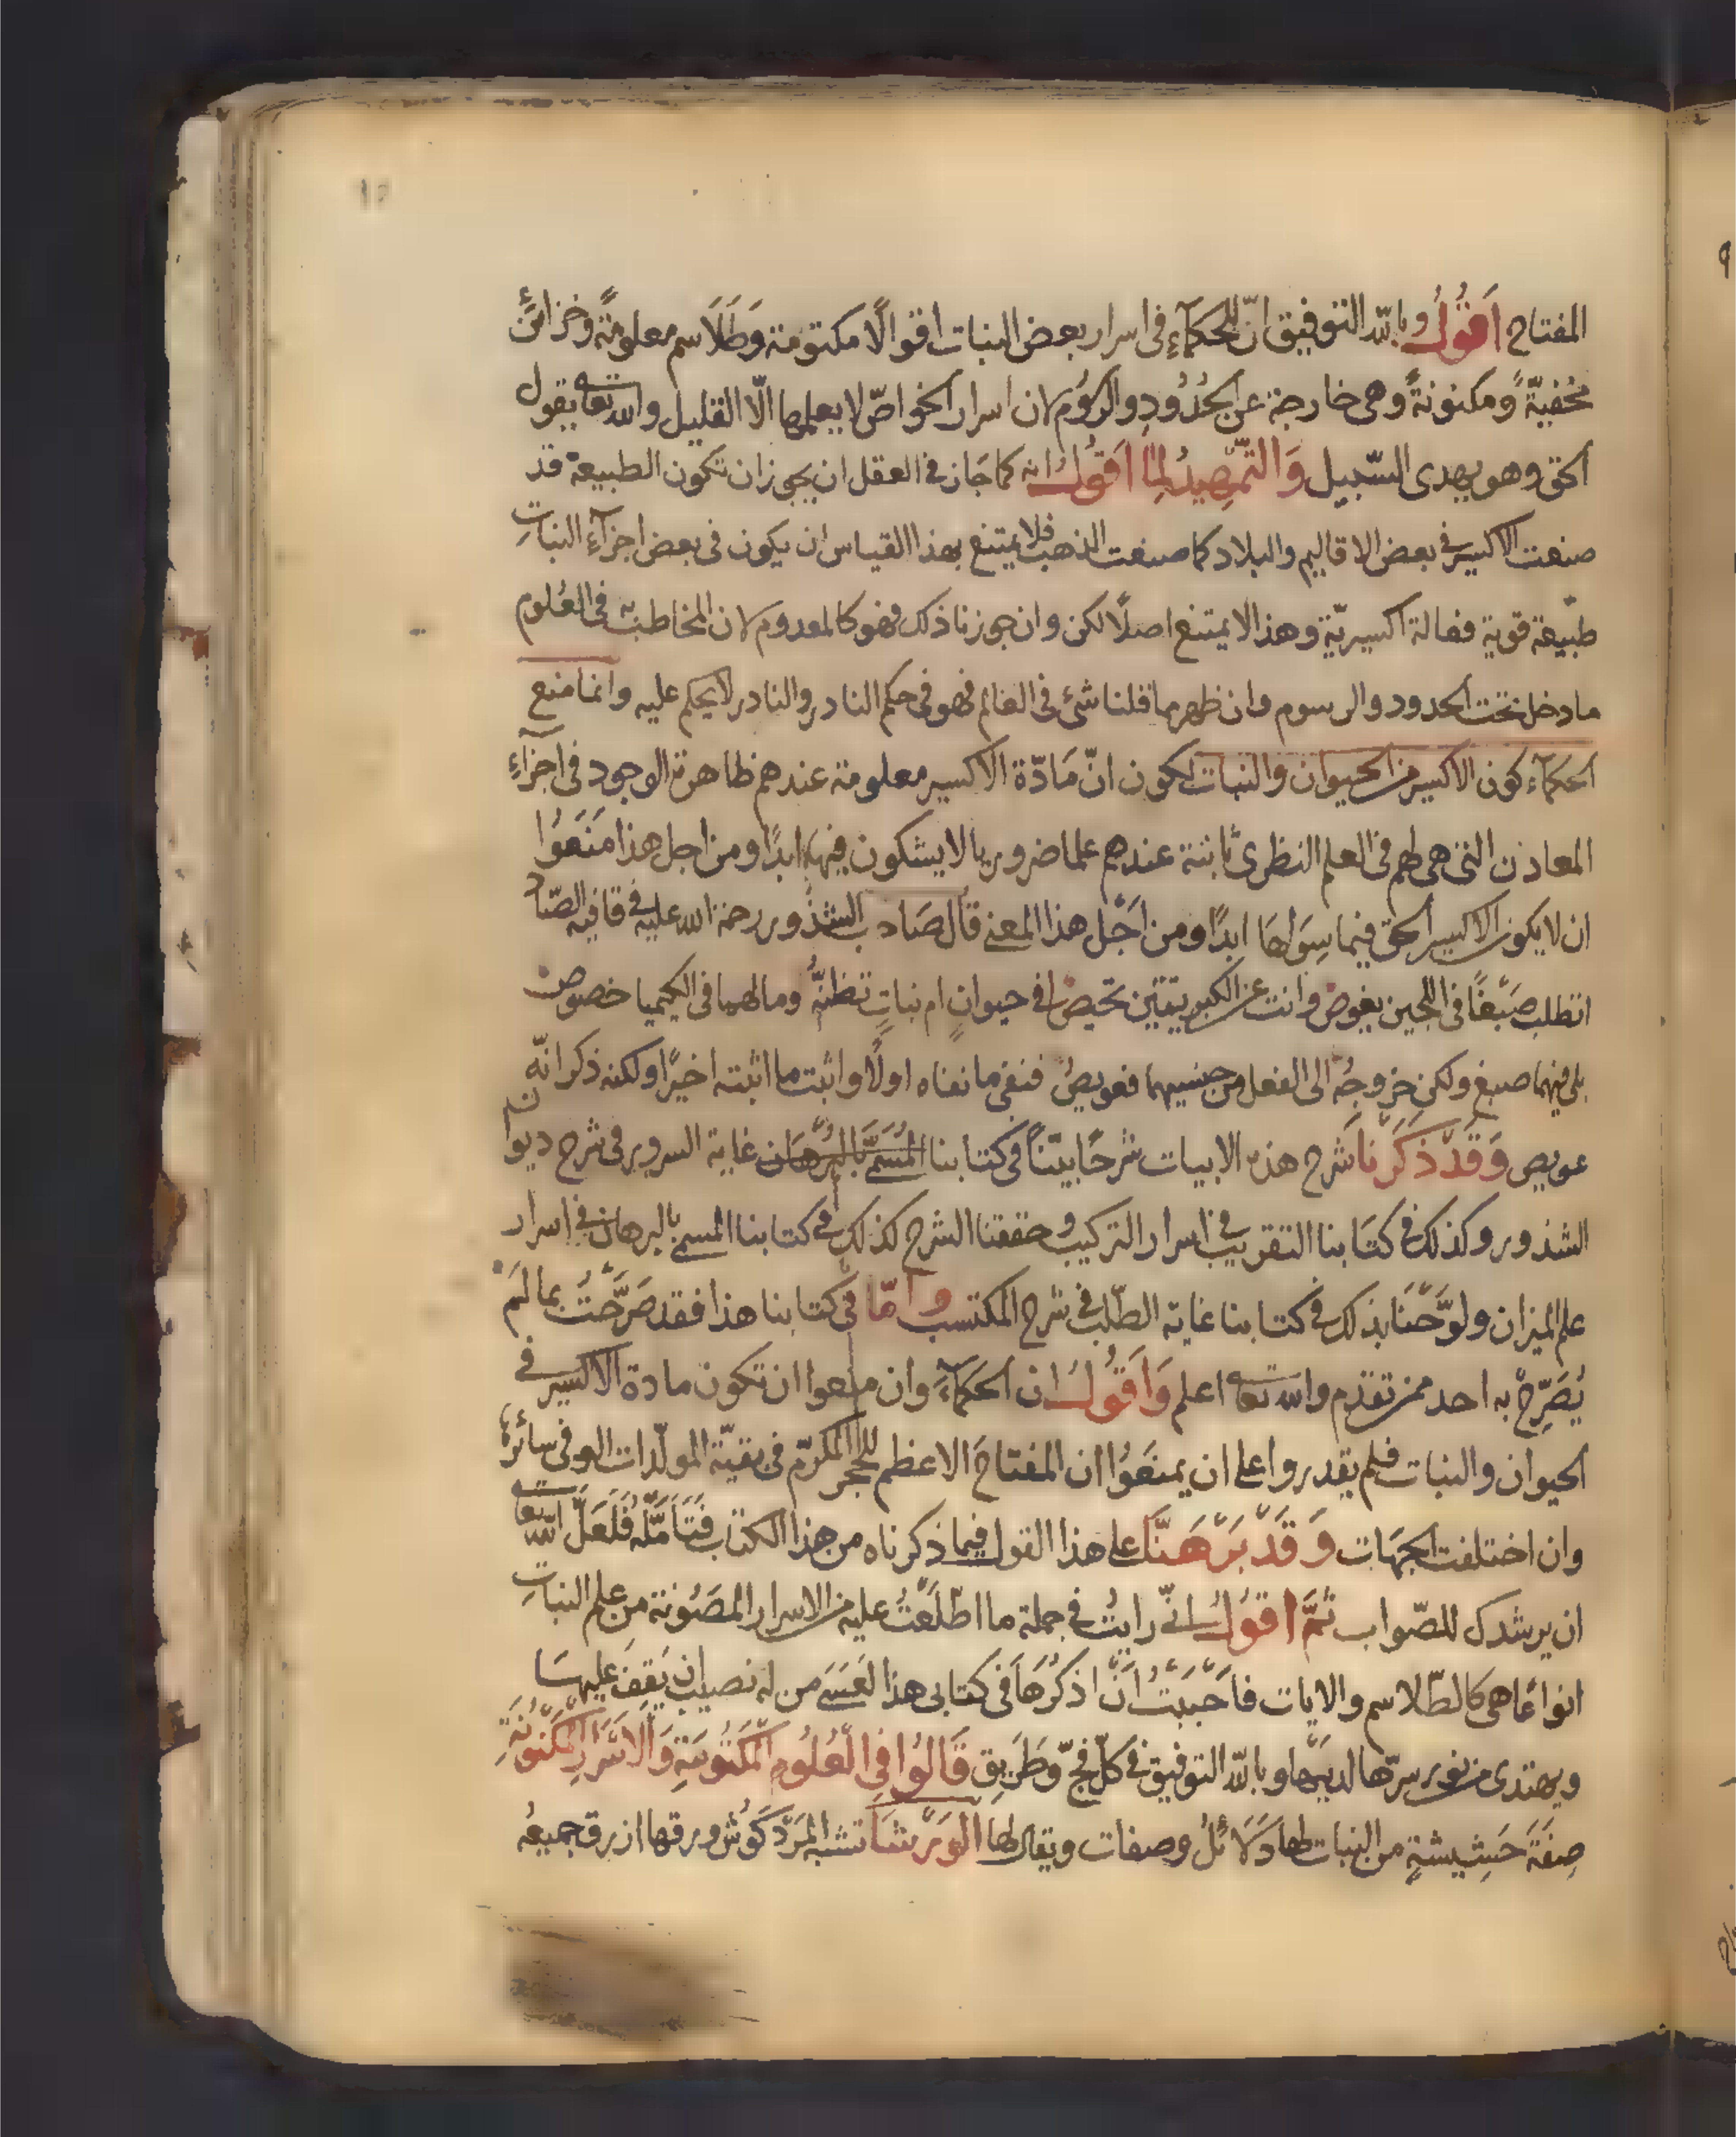 ١٥
المفتاح اَقُولُ وبالله التوفيق انّ للحكمآءِ فى اسرار بعض النبات اقوالًا مكتومة وَطَلَاسم معلومةً وخزائنَ
مخفيّةً ومكنونةً وهى خارجة عن الحُدُودِ والرسُوم لان اسرار الخواصّ لا يعلمها الّا القليل والله تعا يقول
الحق وهو يهدى السّبيل وَالتّمهِيدُ لِمَا اَقُولُ انه كما جَاز فى العقل ان يجوزان تكون الطبيعة قد
صنعت الاكسير فى بعض الاقاليم والبلاد كما صنعت الذهب فلا يمتنع بهذا القياس ان يكون فى بعض اجزآءِ النباتِ
طبيعة قوية فعالة اكسيريّة وهذا لا يمتنع اصلًا لكن وان جوزنا ذلك فهو كالمعدوم لان المخاطب به فى العُلوم
ما دخل تحت الحدود والرسوم وان ظهر مما قلنا شئ فى العالم فهو فى حكم النادر والنادر لا يحكم عليه وانما منع
الحكمآء كون الاكسير من الحيوان والنبات لكون انّ مَادّة الاكسير معلومة عندهم ظاهرة الوجود فى اجزآءِ
المعادن التى هى لهم فى العلم النظرى ثابتة عندهم علما ضروريا لا يشكون فيها ابدًا ومن اجل هذا مَنَعوُا
ان لا يكون الاكسير الحق فيما سِوَاهَا ابدًا ومن اَجْل هذا المعنى قال صَاحب الشذور رحمة الله عليه فى قافية الصّاد
اتطلب صَبغًا فى اللجين يغوص وانت عن الكبريتتين تحيص افى حيوانٍ ام نباتٍ تظنّهُ وما لهما فى الكيميا خصوص
بلى فيهما صبغ ولكن خروجهُ الى الفعل من جنسيهما فعويصُ فنفى ما نفاه اولًا واثبت ما اثبته اخيرًا ولكنه ذكر انّه
عويص وَقَدْ ذَكَرْنَا شرح هذه الابيات شرحًا بيّنًا فى كتابنا المُسَمَّى بالبُرْهَان غاية السرور فى شرح ديوان
الشذور وكذلك فى كتَابنا التقريب فى اسرار التركيب وحققنا الشرح كذلك فى كتابنا المسمى بالبرهان فى اسرار
علم الميزان ولوّحْنَا بذلك فى كتابنا غاية الطّلب فى شرح المكتسب واَمّا فى كتابنا هذا فقد صَرَّحْتُ بما لَمْ
يُصَرّحْ به احد ممن تقدم والله تعا اعلم وَاَقُولُ ان الحكمآءَ وان منعوا ان تكون مادة الاكسير فى
الحيوان والنبات فلم يقدروا على ان يمنعَوُا ان المفتاحَ الاعظم للحجر المكرّم فى بقيّة المولّدات او فى سائرها
وان اختلفت الجهَات وَقَدْ بَرْهَنَّا على هذا القول فيما ذكرناه من هذا الكتاب فَتَاَمَّلْه فَلَعَلَّ الله تعا
ان يرشدك للصّواب ثمَّ اَقُولُ انّى رايتُ فى جملة ما اطّلَعْتُ عليه من الاسرار المصُونة من علم النباتِ
انواعًا هى كالطّلاسم والايات فاَحْبَبْتُ اَنْ اذكُرهَا فى كتابى هذا لعَسَى من له نصيب ان يَقِفَ عليهَا
ويهتدى من نور سرّها لديْها وبالله التوفيق فى كلّ فجّ وطَريق قَالُوا فِى الْعُلُومِ الْمَكْتُومَةِ وَالاَسْرَارِ الْمَكْنُونَةِ
صِفَة حَشِيشةٍ من النبات لها دَلَائلُ وصفات ويقال لها الوَرْشَا تشبه المَرْدَكُوش ورقها ازرق جميعُه